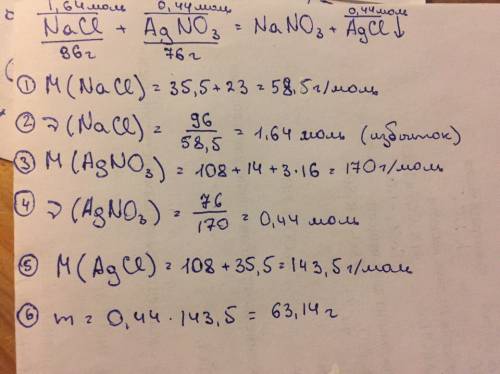 1,64 моль 0,44 моль 0,44 моль
NaCl + AgNO₃ = NaNO₃ + AgCl↓
96г 76г
① M(NaCl) = 35,5 + 23 = 58,5 г/моль
② ν(NaCl) = 96/58,5 = 1,64 моль (избыток)
③ M(AgNO₃) = 108 + 14 + 3·16 = 170 г/моль
④ ν(AgNO₃) = 76/170 = 0,44 моль
⑤ M(AgCl) = 108 + 35,5 = 143,5 г/моль
⑥ m = 0,44 · 143,5 = 63,14 г